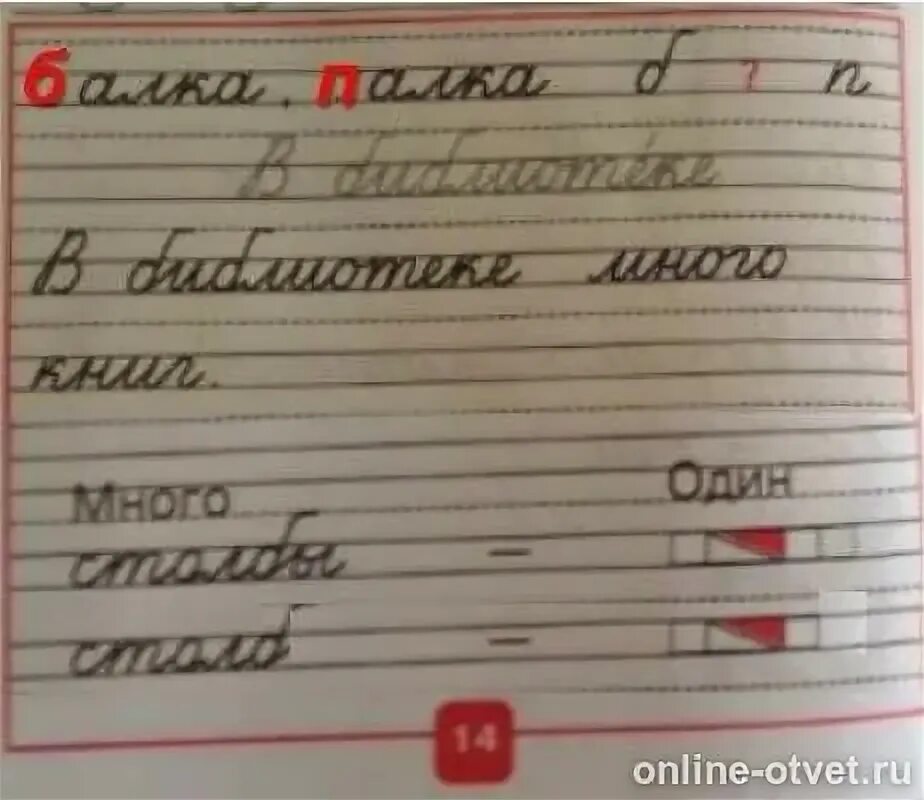 балка. палка б ? п
В библиоте́ке
В библиотеке много
книг.
Много Один
столбы –
столб –
14
online-otvet.ru